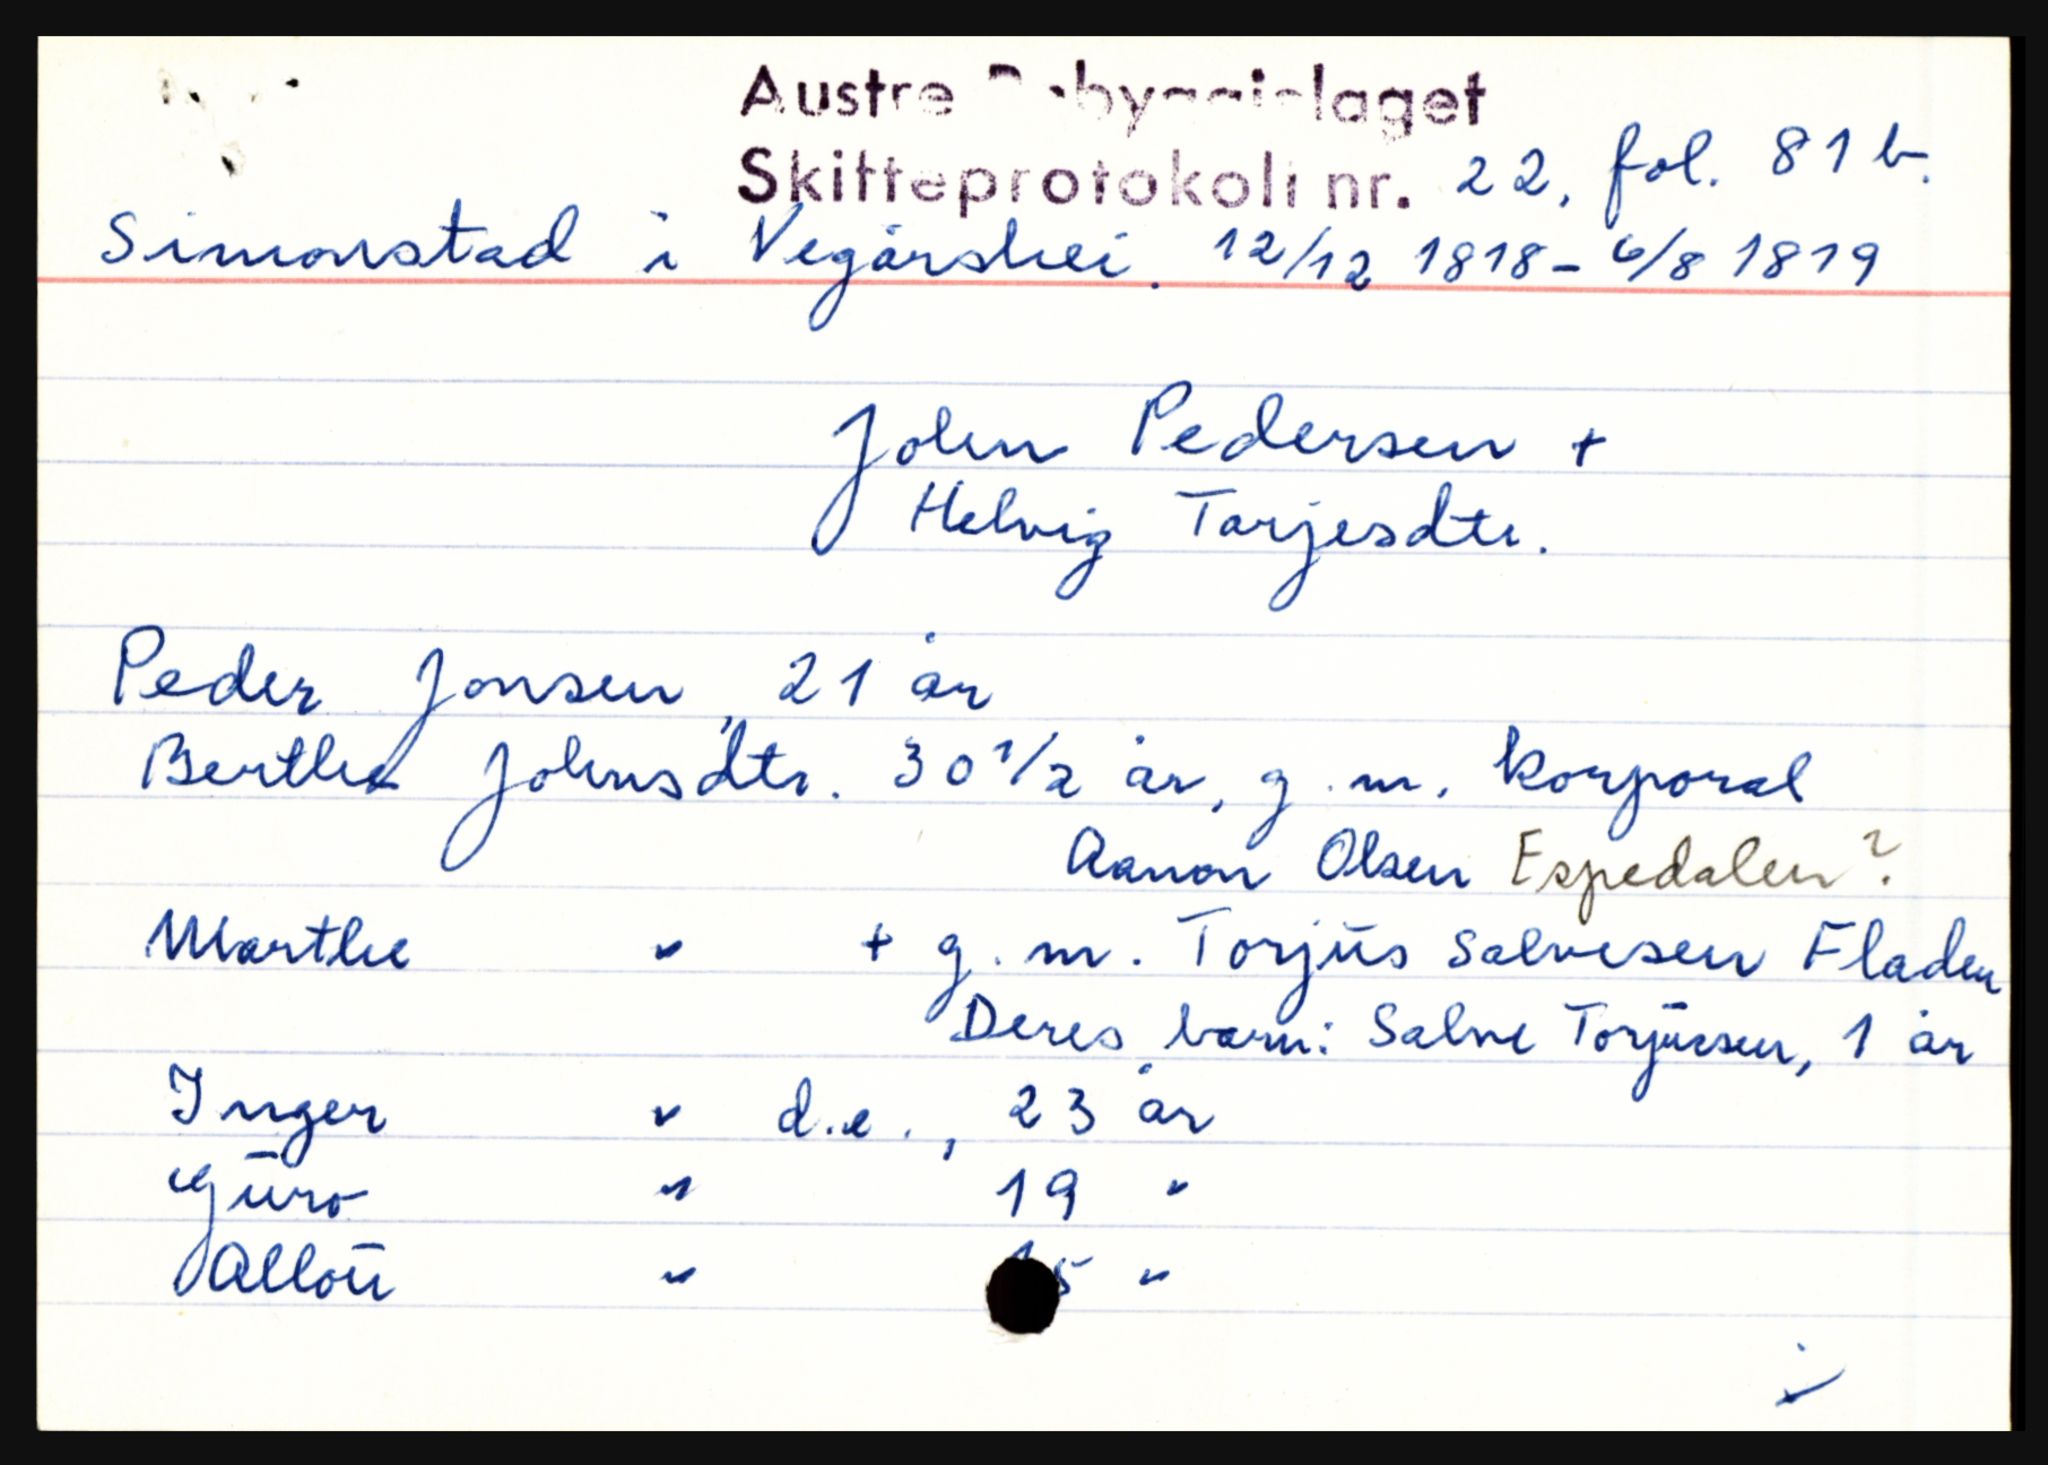 Austre Råbyggjelaget
Skifteprotokoll nr. 22, fol. 81 b.
Simonstad i Vegårshei. 12/12 1818 - 6/8 1819
John Pedersen +
Helvig Tarjesdtr.
Peder Jonsen, 21 år
Berthe Johnsdtr. 30 1/2 år, g.m. korporal
Aanon Olsen Espedalen?
Marthe " + g.m. Torjus Salvesen Fladen
Deres barn: Salve Torjussen, 1 år
Inger " d.e., 23 år
Guro " 19 "
Allou " 15 "